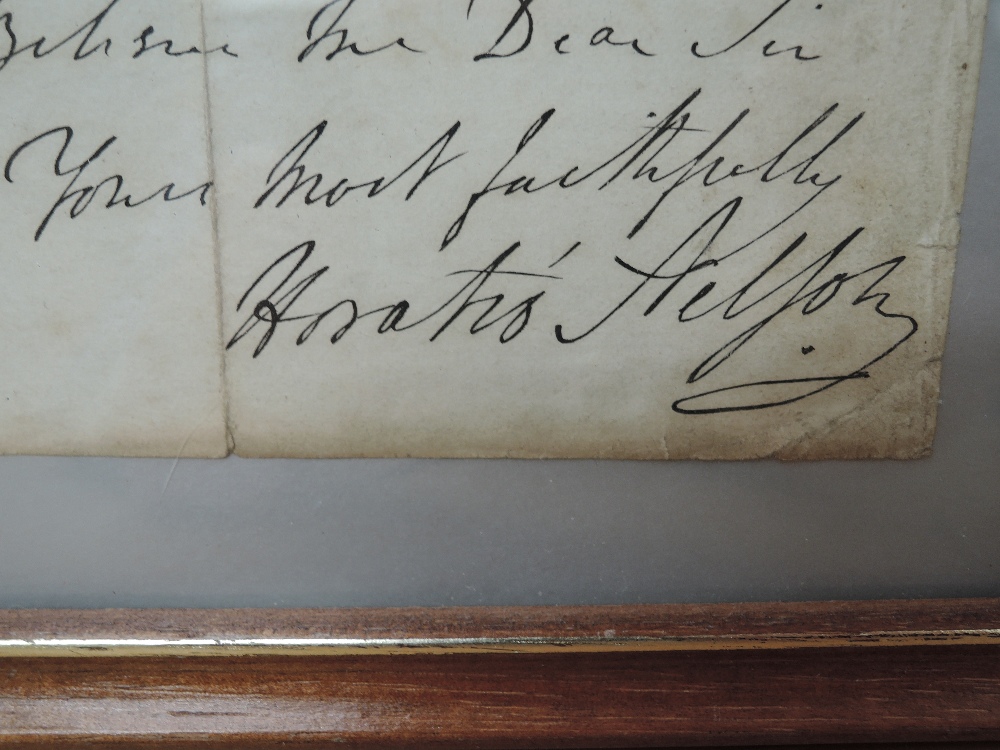 Believe me Dear Sir
Yours most faithfully
Horatio Nelson